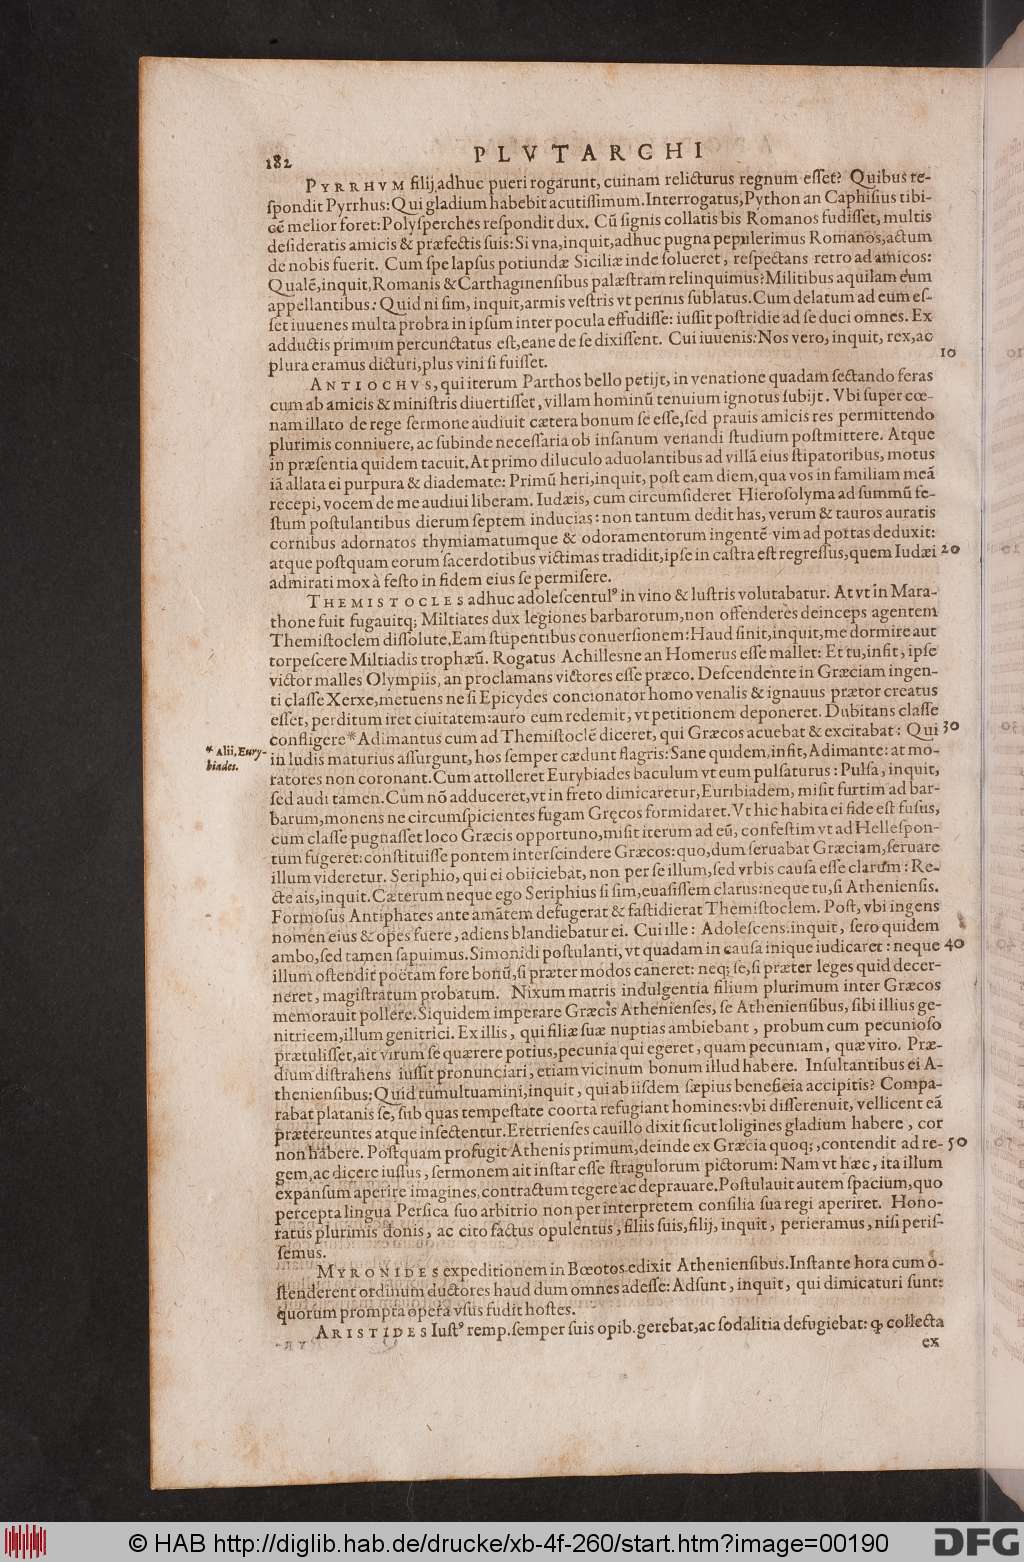 182
PLVTARCHI
PYRRHVM filij adhuc pueri rogarunt, cuinam relicturus regnum eſſet? Quibus re-
ſpondit Pyrrhus: Qui gladium habebit acutiſſimum. Interrogatus, Python an Caphiſius tibi-
cē melior foret: Polyſperches reſpondit dux. Cū ſignis collatis bis Romanos fudiſſet, multis
deſideratis amicis & præfectis ſuis: Si vna, inquit, adhuc pugna pepulerimus Romanos, actum
de nobis fuerit. Cum ſpe lapſus potiundæ Siciliæ inde ſolueret, reſpectans retro ad amicos:
Qualē, inquit, Romanis & Carthaginenſibus palæſtram relinquimus? Militibus aquilam eum
appellantibus: Quid ni ſim, inquit, armis veſtris vt pennis ſublatus. Cum delatum ad eum eſ-
ſet iuuenes multa probra in ipſum inter pocula effudiſſe: iuſſit poſtridie ad ſe duci omnes. Ex
adductis primum percunctatus eſt, eane de ſe dixiſſent. Cui iuuenis: Nos vero, inquit, rex, ac
plura eramus dicturi, plus vini ſi fuiſſet.
10
ANTIOCHVS, qui iterum Parthos bello petijt, in venatione quadam ſectando feras
cum ab amicis & miniſtris diuertiſſet, villam hominū tenuium ignotus ſubijt. Vbi ſuper cœ-
nam illato de rege ſermone audiuit cætera bonum ſe eſſe, ſed prauis amicis res permittendo
plurimis conniuere, ac ſubinde neceſſaria ob inſanum venandi ſtudium poſtmittere. Atque
in præſentia quidem tacuit. At primo diluculo aduolantibus ad villā eius ſtipatoribus, motus
iā allata ei purpura & diademate: Primū heri, inquit, poſt eam diem, qua vos in familiam meā
recepi, vocem de me audiui liberam. Iudæis, cum circumſideret Hieroſolyma ad ſummū fe-
ſtum poſtulantibus dierum ſeptem inducias: non tantum dedit has, verum & tauros auratis
cornibus adornatos thymiamatumque & odoramentorum ingentē vim ad portas deduxit:
atque poſtquam eorum ſacerdotibus victimas tradidit, ipſe in caſtra eſt regreſſus, quem Iudæi 20
admirati mox à feſto in fidem eius ſe permiſere.
THEMISTOCLES adhuc adoleſcentulꝰ in vino & luſtris volutabatur. At vt in Mara-
thone fuit fugauitq; Miltiates dux legiones barbarorum, non offenderes deinceps agentem
Themiſtoclem diſſolute. Eam ſtupentibus conuerſionem: Haud ſinit, inquit, me dormire aut
torpeſcere Miltiadis trophæū. Rogatus Achillesne an Homerus eſſe mallet: Et tu, infit, ipſe
victor malles Olympiis, an proclamans victores eſſe præco. Deſcendente in Græciam ingen-
ti claſſe Xerxe, metuens ne ſi Epicydes concionator homo venalis & ignauus prætor creatus
eſſet, perditum iret ciuitatem: auro eum redemit, vt petitionem deponeret. Dubitans claſſe
confligere* Adimantus cum ad Themiſtoclē diceret, qui Græcos acuebat & excitabat: Qui 30
* Alii, Eury-
biades.
in ludis maturius aſſurgunt, hos ſemper cædunt flagris: Sane quidem, infit, Adimante: at mo-
ratores non coronant. Cum attolleret Eurybiades baculum vt eum pulſaturus: Pulſa, inquit,
ſed audi tamen. Cùm nō adduceret, vt in freto dimicaretur, Euribiadem, miſit furtim ad bar-
barum, monens ne circumſpicientes fugam Gręcos formidaret. Vt hic habita ei fide eſt fuſus,
cum claſſe pugnaſſet loco Græcis opportuno, miſit iterum ad eū, confeſtim vt ad Helleſpon-
tum fugeret: conſtituiſſe pontem interſcindere Græcos: quo, dum ſeruabat Græciam, ſeruare
illum videretur. Seriphio, qui ei obiiciebat, non per ſe illum, ſed vrbis cauſa eſſe clarum: Re-
cte ais, inquit. Cæterum neque ego Seriphius ſi ſim, euaſiſſem clarus: neque tu, ſi Athenienſis.
Formoſus Antiphates ante amātem defugerat & faſtidierat Themiſtoclem. Poſt, vbi ingens
nomen eius & opes fuere, adiens blandiebatur ei. Cui ille: Adoleſcens, inquit, ſero quidem
ambo, ſed tamen ſapuimus. Simonidi poſtulanti, vt quadam in cauſa inique iudicaret: neque 40
illum oſtendit poëtam fore bonū, ſi præter modos caneret: neq; ſe, ſi præter leges quid decer-
neret, magiſtratum probatum. Nixum matris indulgentia filium plurimum inter Græcos
memorauit pollere. Siquidem imperare Græcis Athenienſes, ſe Athenienſibus, ſibi illius ge-
nitricem, illum genitrici. Ex illis, qui filiæ ſuæ nuptias ambiebant, probum cum pecunioſo
prætuliſſet, ait virum ſe quærere potius, pecunia qui egeret, quam pecuniam, quæ viro. Præ-
dium diſtrahens iuſſit pronunciari, etiam vicinum bonum illud habere. Inſultantibus ei A-
thenienſibus: Quid tumultuamini, inquit, qui ab iiſdem ſæpius beneficia accipitis? Compa-
rabat platanis ſe, ſub quas tempeſtate coorta refugiant homines: vbi differenuit, vellicent eā
prætereuntes atque inſectentur. Eretrienſes cauillo dixit ſicut loligines gladium habere, cor
non habere. Poſtquam profugit Athenis primum, deinde ex Græcia quoq;, contendit ad re- 50
gem, ac dicere iuſſus, ſermonem ait inſtar eſſe ſtragulorum pictorum: Nam vt hæc, ita illum
expanſum aperire imagines, contractum tegere ac deprauare. Poſtulauit autem ſpacium, quo
percepta lingua Perſica ſuo arbitrio non per interpretem conſilia ſua regi aperiret. Hono-
ratus plurimis donis, ac cito factus opulentus, filiis ſuis, filij, inquit, perieramus, niſi periſ-
ſemus.
MYRONIDES expeditionem in Bœotos edixit Athenienſibus. Inſtante hora cum o-
ſtenderent ordinum ductores haud dum omnes adeſſe: Adſunt, inquit, qui dimicaturi ſunt:
quorum prompta opera vſus fudit hoſtes.
ARISTIDES Iuſtꝰ remp. ſemper ſuis opib. gerebat, ac ſodalitia defugiebat: ꝙ collecta
ex
© HAB http://diglib.hab.de/drucke/xb-4f-260/start.htm?image=00190
DFG